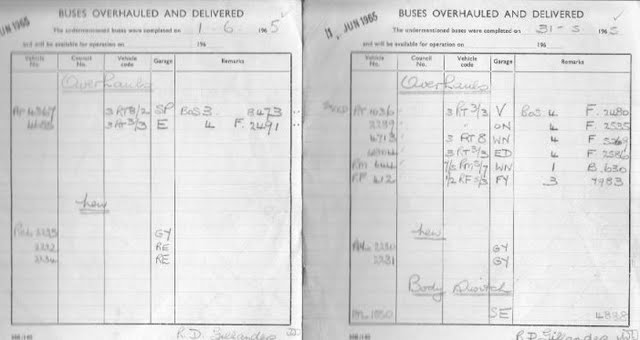 JUN 1965
BUSES OVERHAULED AND DELIVERED
The undermentioned buses were completed on 1-6- 196 5
and will be available for operation on 196
Vehicle No. Council No. Vehicle code Garage Remarks
Overhauls
3 RT8/2 SP BOS 3. 8473
3 RT3/3 E 4 F. 2491
New
GY
2232 RE
2234 RE
R.D. Gillanders
1 JUN 1965
BUSES OVERHAULED AND DELIVERED
The undermentioned buses were completed on 31-5- 196 5
and will be available for operation on 196
Vehicle No. Council No. Vehicle code Garage Remarks
Overhauls
RT 1036 3 RT3/3 V BOS. 4 F. 2480
ON 4 F. 2535
4713 3 RT8 WN 4 F.
3 RT3/3 ED 4 F. 2586
RM 644 WN 1 B. 630
RF 412 1/2 RF5/3 FY 3 7983
New
2230 GY
2231 GY
Body Switch
SE 4838
R.D. Gillanders